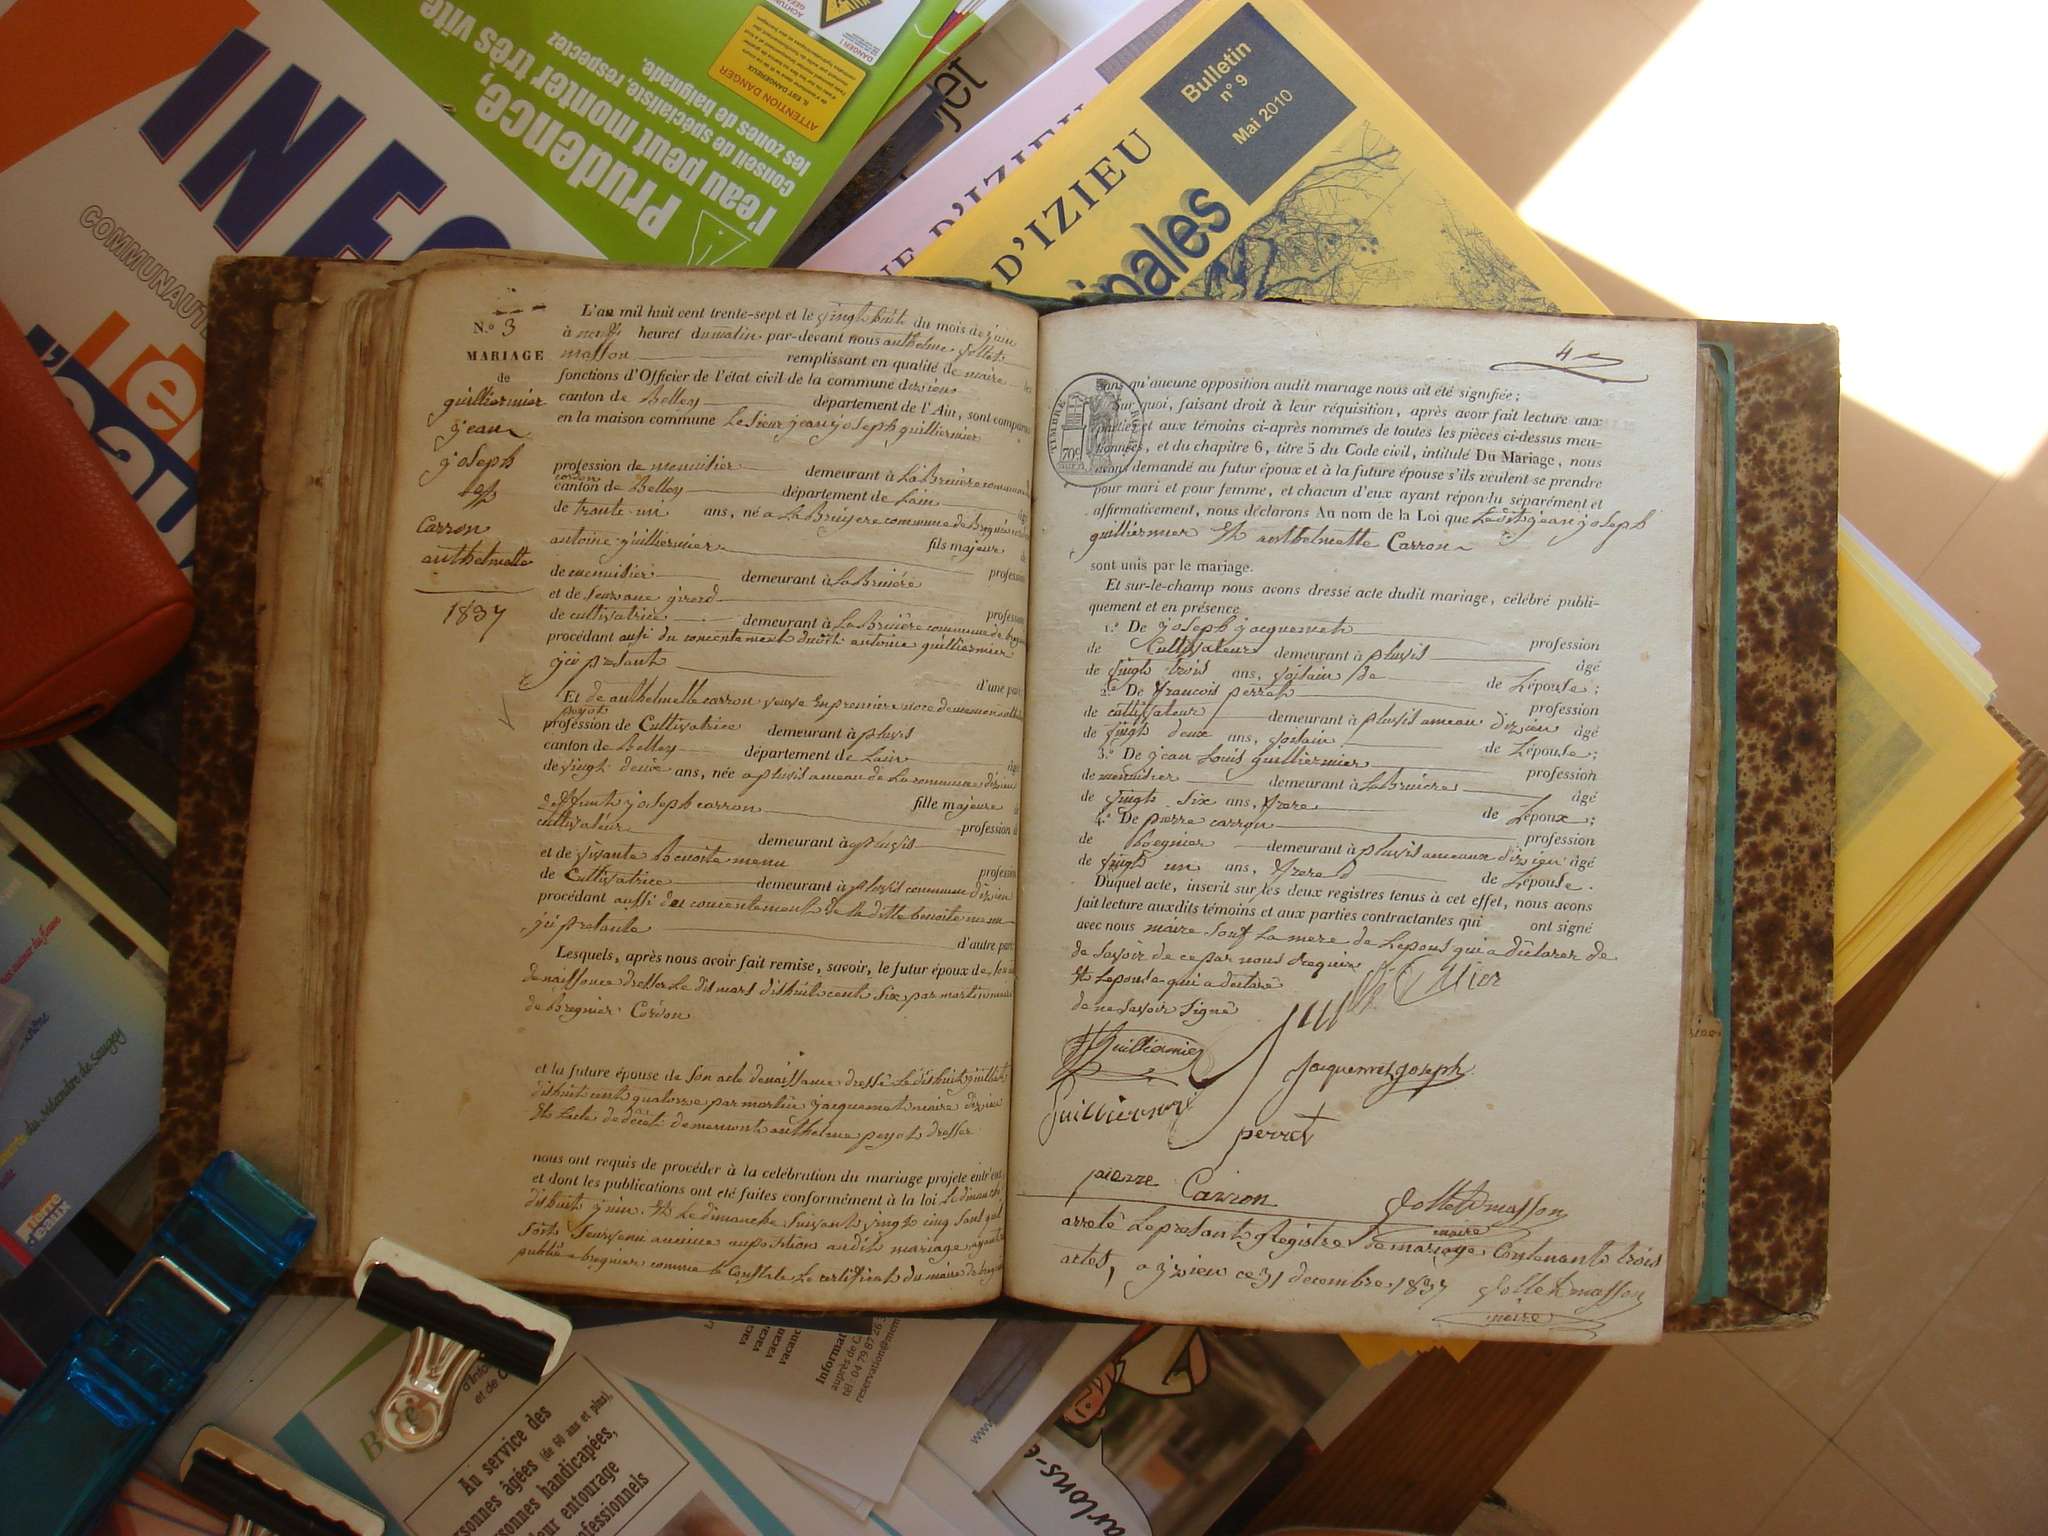 INFO
COMMUNAUTÉ
Prudence,
l'eau peut monter très vite
conseil de spécialiste, respectez
les zones de baignade.
ATTENTION DANGER
IL EST DANGEREUX
DANGER !
Bulletin
n° 9
Mai 2010
D'IZIEU
NE D'IZIEU
ipales
N.º 3
MARIAGE
de
guilliermier
jean
joseph
et
Carron
anthelmette
1837
L'an mil huit cent trente-sept et le vingt huit du mois de juin
à neuf heures du matin par-devant nous anthelme jollet
masson remplissant en qualité de maire les
fonctions d'Officier de l'état civil de la commune dizieu
canton de Belley département de l'Ain, sont comparus
en la maison commune Le sieur jean joseph guilliermier
profession de menuisier demeurant à La Bruière commune
cordon
canton de Belley département de Lain âgé
de trante un ans, né a La Bruyere commune de Bregnier
antoine guilliermier fils majeur de
profession
de menuisier demeurant à La Bruiére
et de girord profession
de cultivatrice demeurant à La Bruiére commune de bregnier
procédant ausi du concentement dudit antoine guilliermier
ici presant
d'une part
Et de anthelmette carron veuve en premiere noce de memon anthelme
peyot
profession de Cultivatrice demeurant à pluvis
canton de Belley département de Lain âgé
de vingt deux ans, née a pluvis ameau de La commune dizieu
deffunt joseph carron fille majeure de
profession de
cultivateur demeurant à pluvis
et de vivante Benoite menu
profession
de Cultivatrice demeurant à pluvis commune dizieu
procédant aussi du concentement de la ditte benoite menu
ici presante
d'autre part
Lesquels, après nous avoir fait remise, savoir, le futur époux de, son
de naissance dresser Le dix mars dixhuit cent six par martin maire
de Bregnier Cordon
et la future épouse de son acte de naissance dressé Le dixhuit juillet
dixhuit cent quatorze par martin jacquemet maire dizieu
Et Lacte de décét de memont anthelme peyot dresser
nous ont requis de procéder à la célébration du mariage projeté entr'eux
et dont les publications ont été faites conformément à la loi Le dimanche
dixhuit juin. Et Le dimanche suivant vingt cinq sant quil
soit survenu aucune aupozition audit mariage ayant
publié a bregnier comme le Constate Le certificat du maire de bregnier
4e
TIMBRE ROYAL
70c
Sans qu'aucune opposition audit mariage nous ait été signifiée ;
Sur quoi, faisant droit à leur réquisition, après avoir fait lecture aux
parties et aux témoins ci-après nommés de toutes les pièces ci-dessus men-
tionnées, et du chapitre 6, titre 5 du Code civil, intitulé Du Mariage, nous
avons demandé au futur époux et à la future épouse s'ils veulent se prendre
pour mari et pour femme, et chacun d'eux ayant répondu séparément et
affirmativement, nous déclarons Au nom de la Loi que Ledit jean joseph
guilliermier Et anthelmette Carron
sont unis par le mariage.
Et sur-le-champ nous avons dressé acte dudit mariage, célébré publi-
quement et en présence
1.º De joseph jacquemet profession
de Cultivateur demeurant à pluvis âgé
de vingt trois ans, voisain de de Lépouse ;
2.º De francois perret profession
de cultivateur demeurant à pluvis ameau dizieu âgé
de vingt deux ans, voisain de Lépouse ;
3.º De jean Louis guilliermier profession
de menuisier demeurant à La Bruiére âgé
de vingt six ans, frere de Lépoux ;
4.º De pierre carron profession
de demeurant à pluvis ameaux dizieu âgé
de vingt un ans, frere de Lépouse.
Duquel acte, inscrit sur les deux registres tenus à cet effet, nous avons
fait lecture auxdits témoins et aux parties contractantes qui ont signé
avec nous maire souf La mere de Lepous qui a déclarer de
de savoir de ce par nous requis
Et Lepouse qui a declaré
de ne savoir signé
Guilliermier
jacquemet joseph
Guilliermier
perret
pierre Carron
jollet masson
maire
arreté Le presant Registre de mariage Contenant trois
actes, a izieu ce 31 decembre 1837
jollet masson
maire
Au service des
personnes âgées (de 60 ans et plus),
personnes handicapées,
leur entourage
professionnels
reservation@
www.
arlons-e